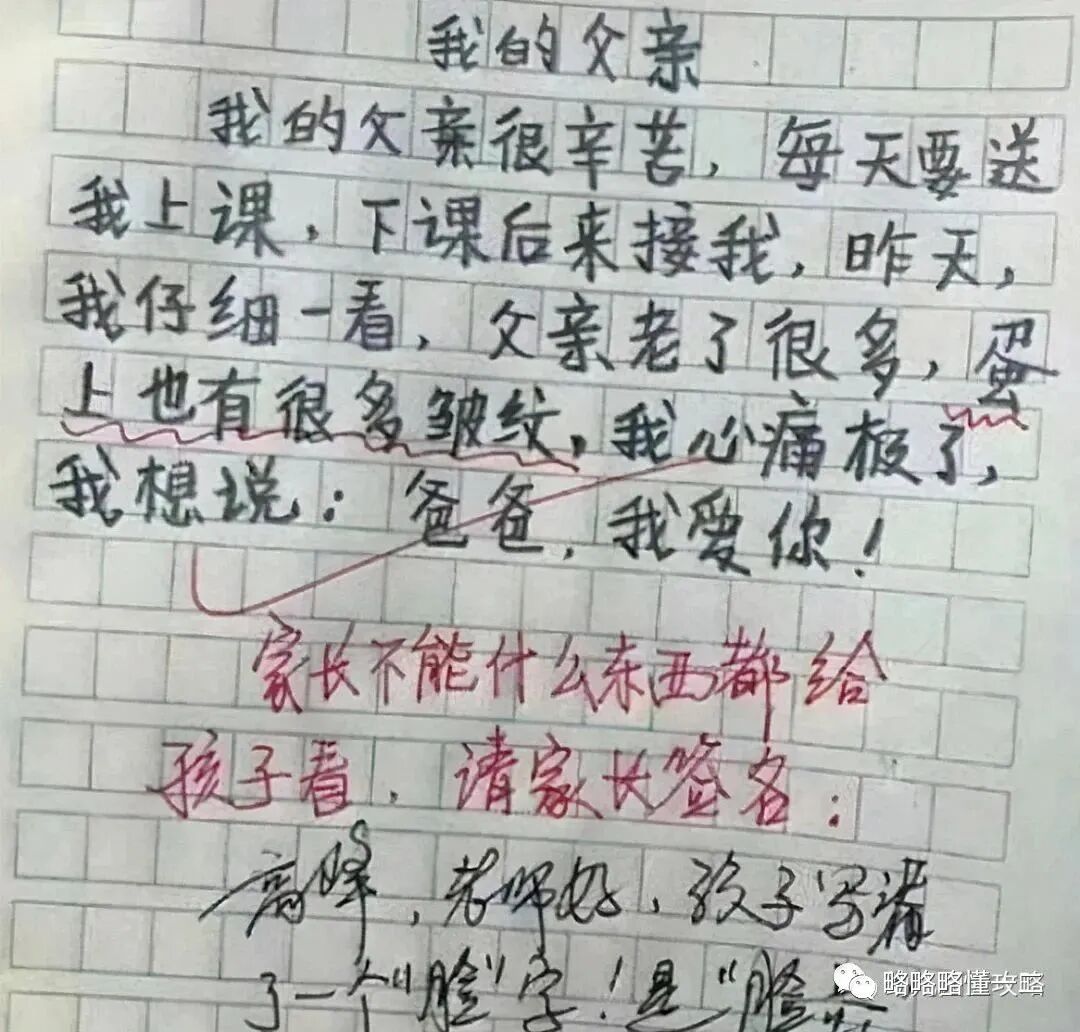 我的父亲
我的父亲很辛苦，每天要送
我上课，下课后来接我，昨天，
我仔细一看，父亲老了很多，蛋
上也有很多皱纹，我心痛极了，
我想说：爸爸，我爱你！
家长不能什么东西都给
孩子看，请家长签名：
高峰，老师好，孩子写错
了一个“脸”字！是“脸
略略略懂攻略